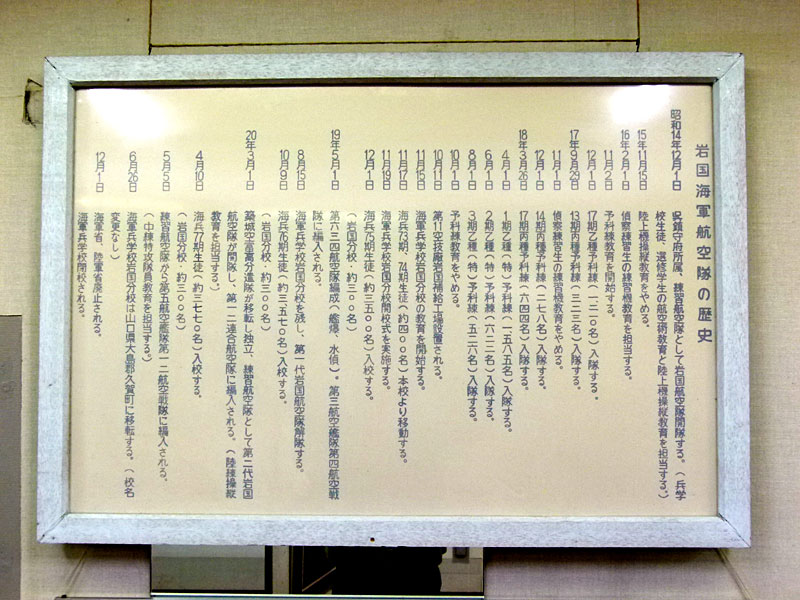 岩国海軍航空隊の歴史
昭和14年12月1日 呉鎮守府所属、練習航空隊として岩国航空隊開隊する。(兵学
校生徒、選修学生の航空術教育と陸上機操縦教育を担当する。)
15年11月15日 陸上機操縦教育をやめる。
16年2月1日 偵察練習生の練習機教育を担当する。
11月2日 予科練教育を開始する。
12月1日 17期乙種予科練(一二一〇名)入隊する。
17年9月29日 13期丙種予科練(三二三名)入隊する。
11月1日 偵察練習生の練習機教育をやめる。
12月1日 14期丙種予科練(二七八名)入隊する。
18年3月26日 17期丙種予科練(六四四名)入隊する。
4月1日 1期乙種(特)予科練(一、五八五名)入隊する。
6月1日 2期乙種(特)予科練(六二二名)入隊する。
8月1日 3期乙種(特)予科練(五二六名)入隊する。
10月1日 予科練教育をやめる。
10月11日 第11空技廠岩国補給工場設置される。
11月15日 海軍兵学校岩国分校の教育を開始する。
11月17日 海兵73期、74期生徒(約四〇〇名)本校より移動する。
11月19日 海軍兵学校岩国分校開校式を実施する。
12月1日 海兵75期生徒(約三五〇〇名)入校する。
(岩国分校 約三〇〇名)
19年5月1日 第六三四航空隊編成(艦爆、水偵)。第三航空艦隊第四航空戦
隊に編入される。
8月15日 海軍兵学校岩国分校を残し、第一代岩国航空隊解隊する。
10月9日 海兵76期生徒(約三、五七〇名)入校する。
(岩国分校 約三〇〇名)
20年3月1日 築城空富高分遣隊が移転し独立、練習航空隊として第二代岩国
航空隊が開隊し、第一二連合航空隊に編入される。(陸練操縦
教育を担当する。)
4月10日 海兵77期生徒(約三七七〇名)入校する。
(岩国分校 約三〇〇名)
5月5日 練習航空隊から第五航空艦隊第一二航空戦隊に編入される。
(中練特攻隊員教育を担当する。)
6月26日 海軍兵学校岩国分校は山口県大島郡久賀町に移転する。(校名
変更なし)
12月1日 海軍省、陸軍省廃止される。
海軍兵学校閉校される。